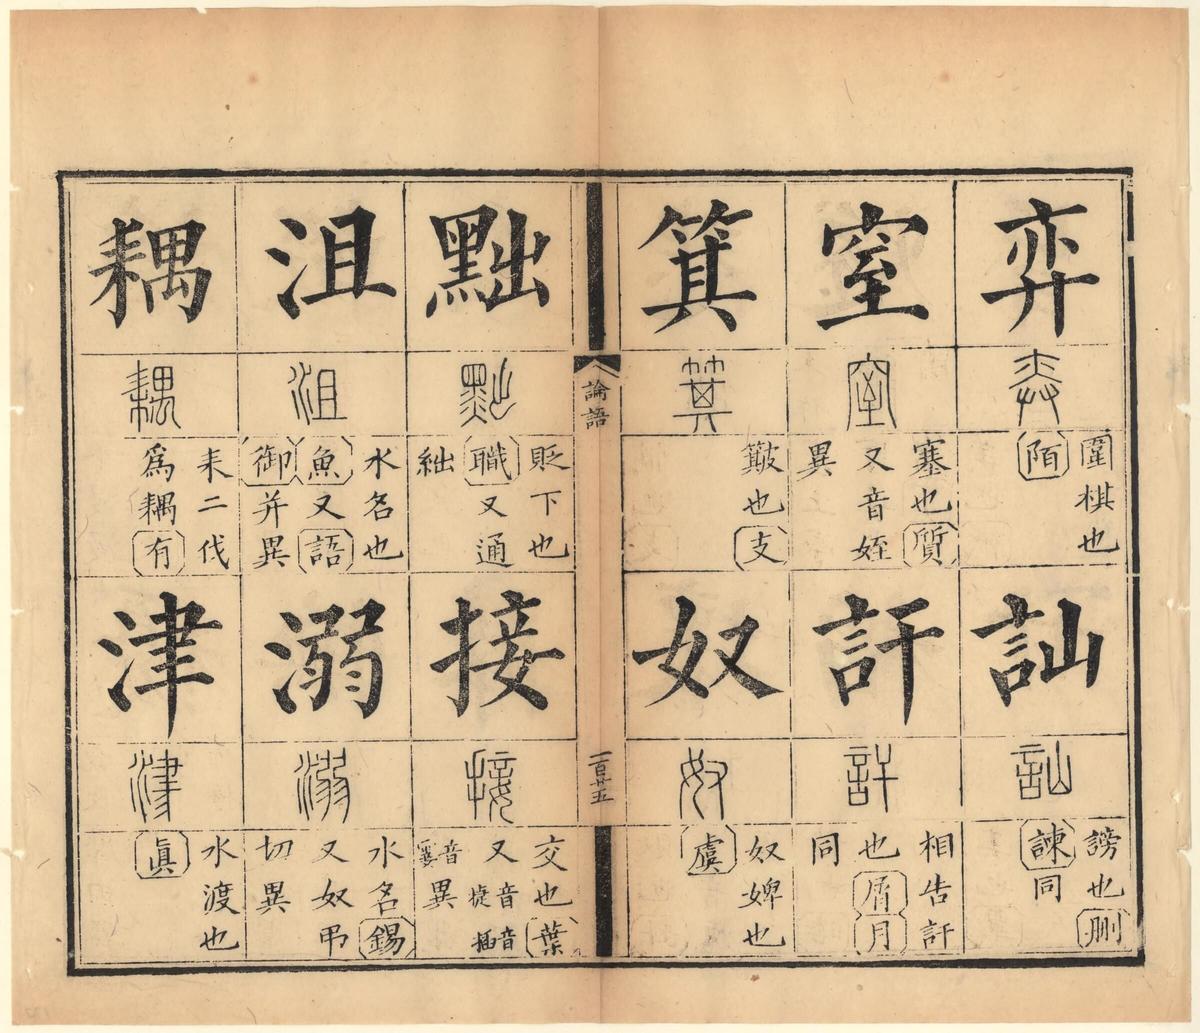 弈
弈
圍棋也
陌
訕
訕
謗也刪
諫同
窒
窒
塞也質
又音姪
異
訐
訐
相告訐
也屑月
同
箕
箕
簸也支
奴
奴
奴婢也
虞
論語
一百廿五
黜
黜
貶下也
職又通
絀
接
接
交也葉
又音捷音插
音異
沮
沮
水名也
魚又語
御并異
溺
溺
水名錫
又奴弔
切異
耦
耦
耒二伐
爲耦有
津
津
水渡也
眞